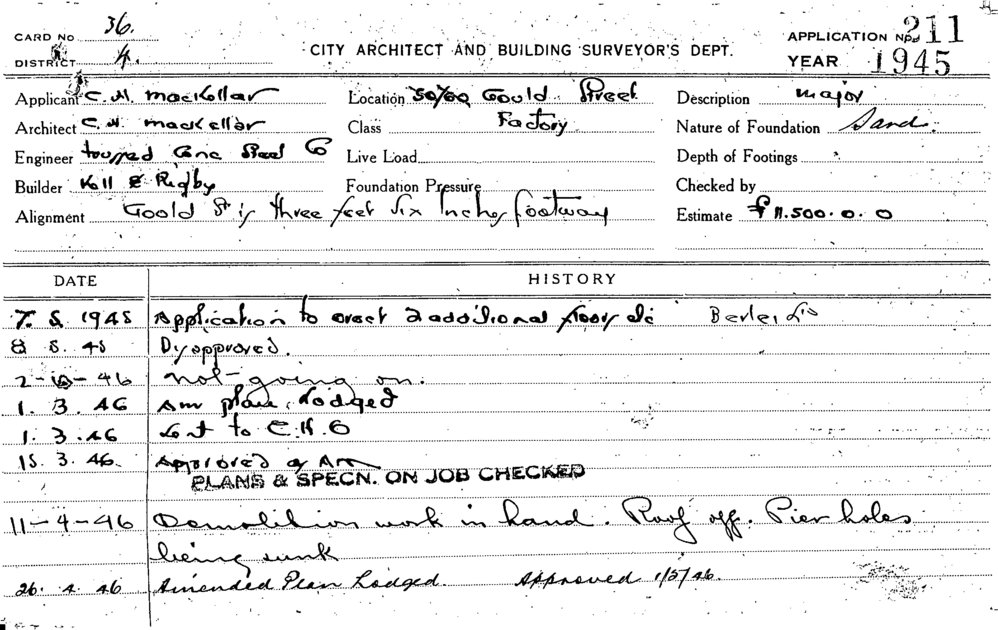 CARD No 36.
DISTRICT 4.
CITY ARCHITECT AND BUILDING SURVEYOR'S DEPT.
APPLICATION No. 211
YEAR 1945
Applicant C. H. MacKellar
Location 50/60 Gould Street
Description Major
Architect C. H. MacKellar
Class Factory
Nature of Foundation Sand.
Engineer Conc Steel Co
Live Load
Depth of Footings
Builder Kell & Rigby
Foundation Pressure
Checked by
Alignment Goold St is three feet six Inches footway
Estimate £11.500.0.0
DATE
HISTORY
7. 5. 1945 Application to erect 2 additional floors etc Berlei Ltd
8 5. 45 Disapproved.
46 Not going on.
1. 3. 46 Am plans Lodged
1. 3. 46 Sent to
15. 3. 46. Approved
PLANS & SPECN. ON JOB CHECKED
11-4-46 Demolition work in hand. Roof off. Pier holes
being sunk
26. 4. 46 Amended Plan Lodged. Approved 1/5/46.